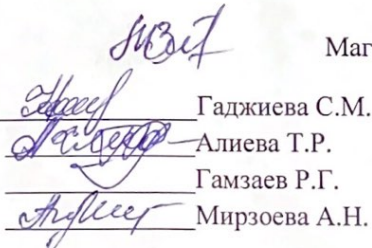 Маг
Гаджиева С.М.
Алиева Т.Р.
Гамзаев Р.Г.
Мирзоева А.Н.